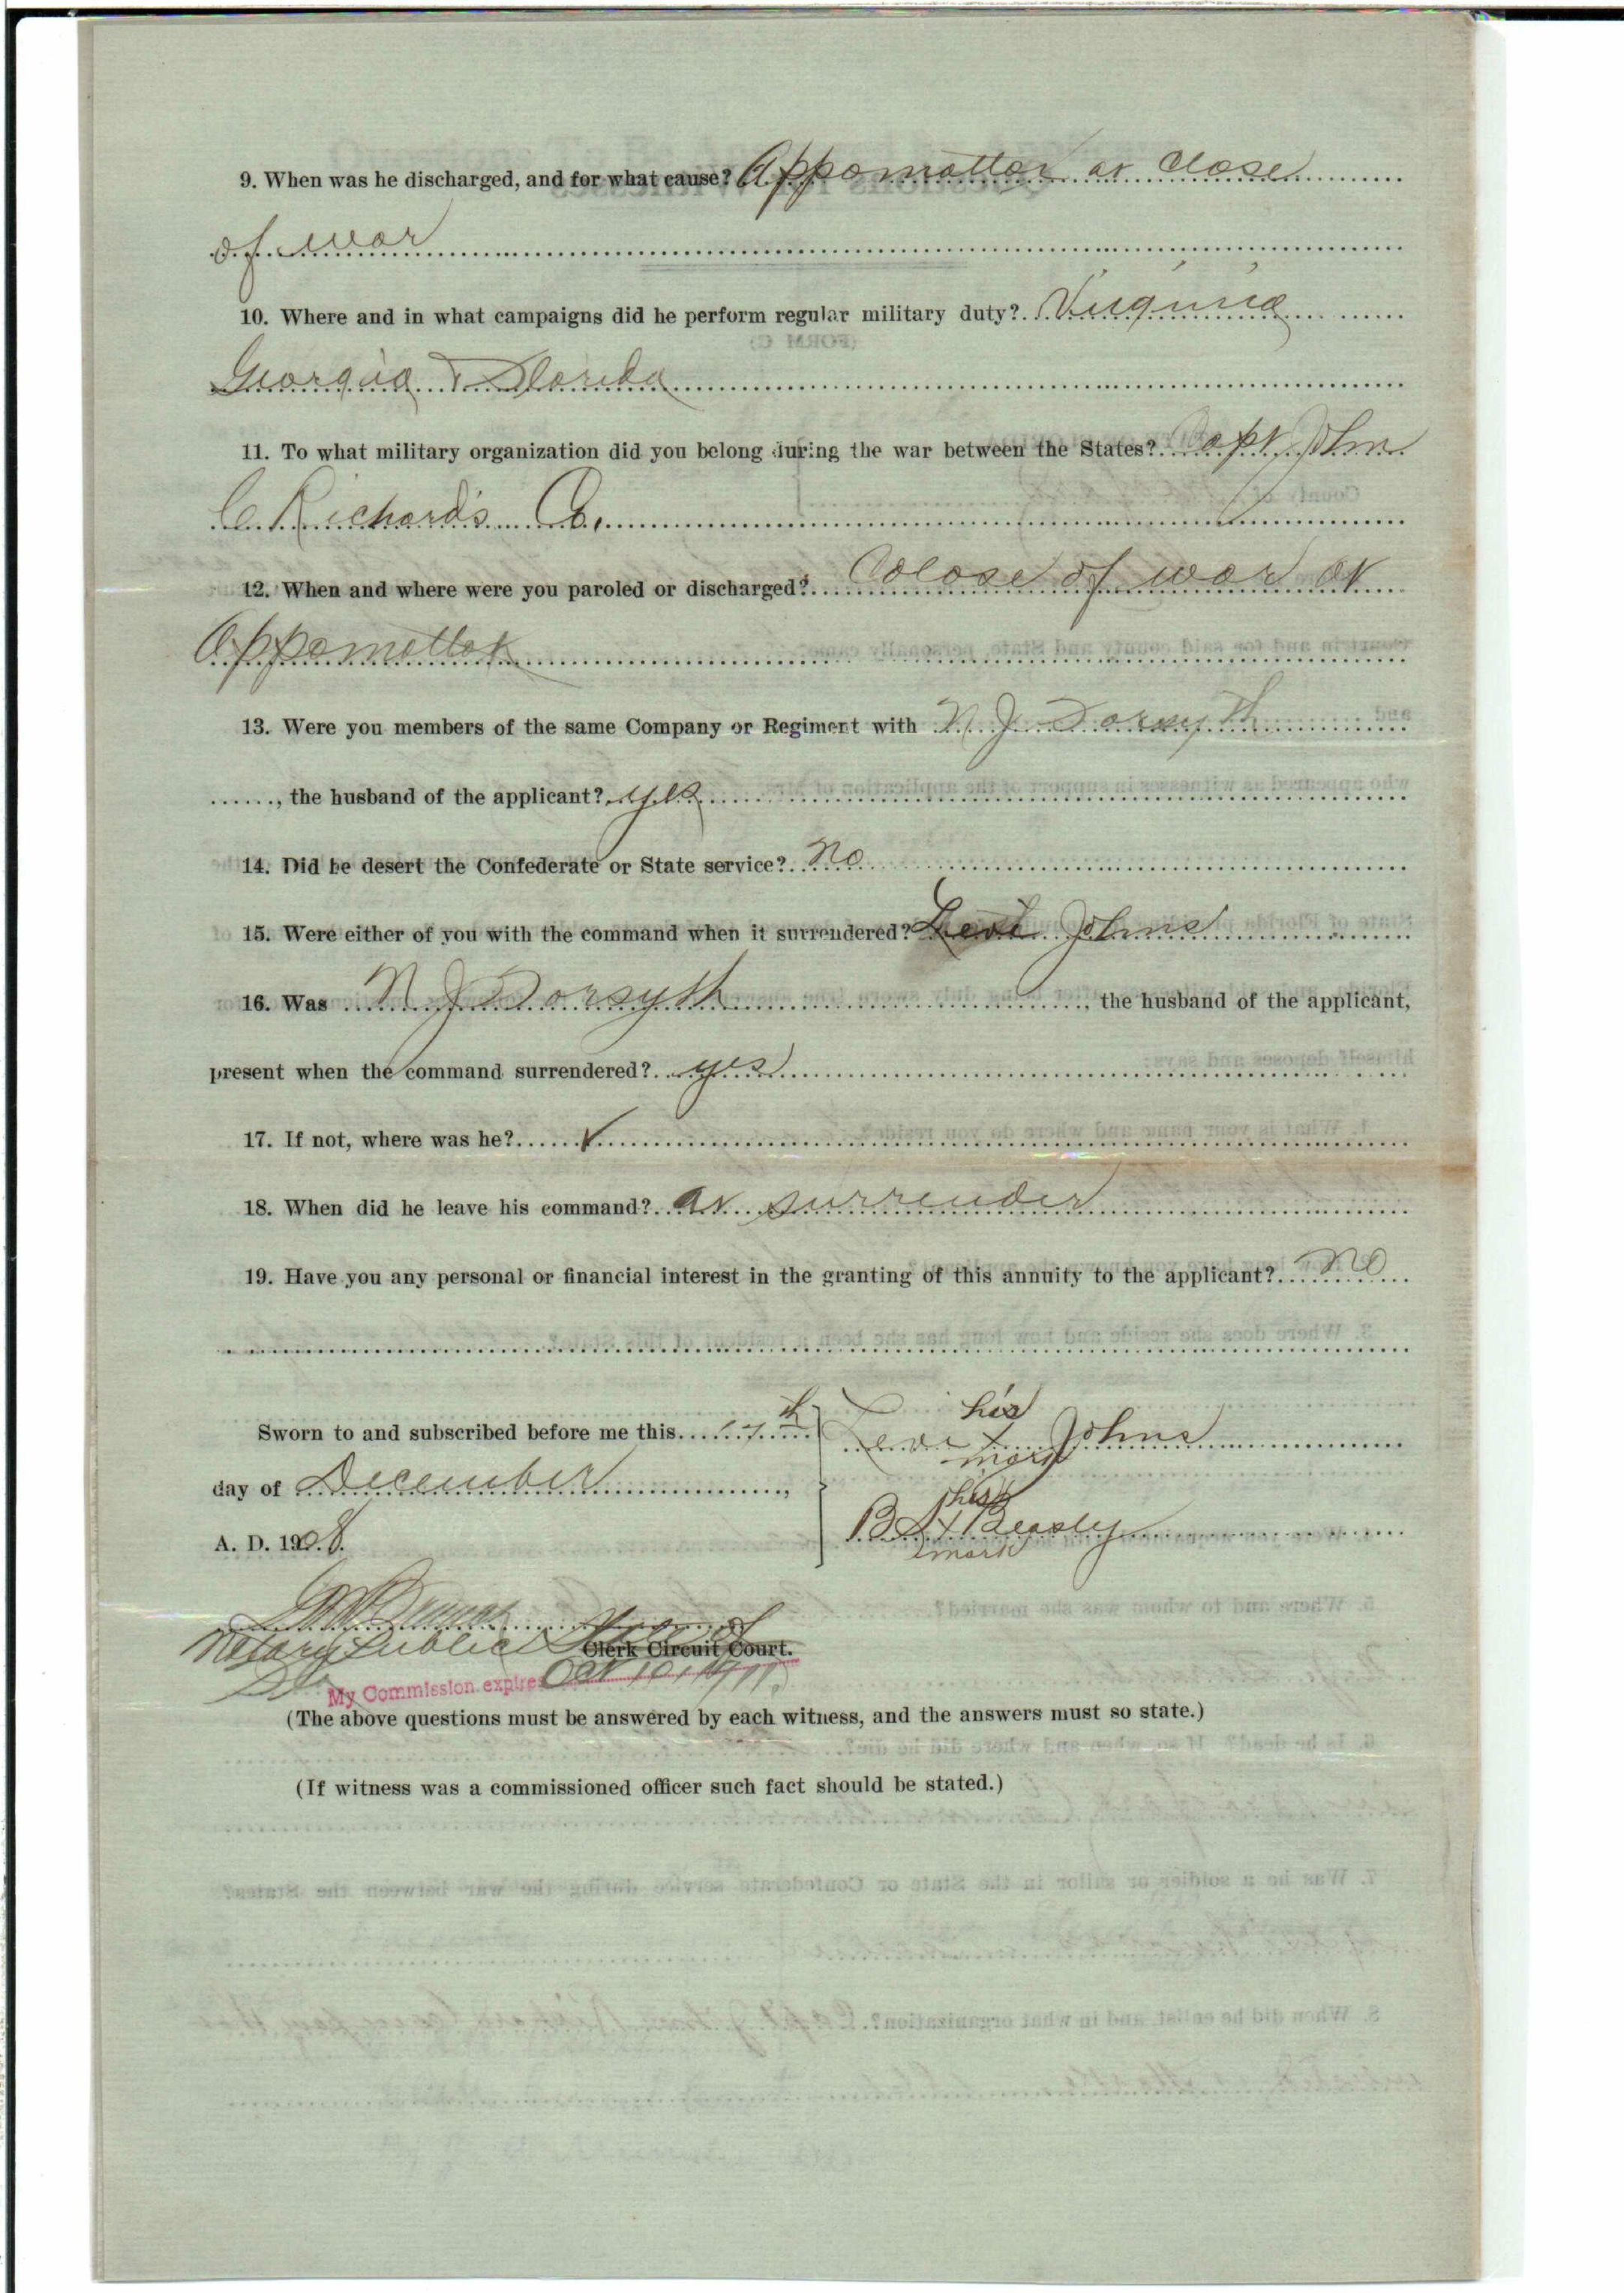 9. When was he discharged, and for what cause? Appomattox at close
of war
10. Where and in what campaigns did he perform regular military duty? Virginia
Georgia & Florida
11. To what military organization did you belong during the war between the States? Capt. John
C Richards Co.
12. When and where were you paroled or discharged? Colose of war at
Appomattox
13. Were you members of the same Company or Regiment with N. J. Forsyth
, the husband of the applicant? yes
14. Did he desert the Confederate or State service? No
15. Were either of you with the command when it surrendered? Levi Johns
16. Was N J Forsyth, the husband of the applicant,
present when the command surrendered? yes
17. If not, where was he?
18. When did he leave his command? at surrender
19. Have you any personal or financial interest in the granting of this annuity to the applicant? no
Sworn to and subscribed before me this 17th
his
Levi X Johns
mark
day of December,
his
B X Beasly
mark
A. D. 1908.
Notary Public State of
Clerk Circuit Court.
My Commission expires Oct 10, 1911.
(The above questions must be answered by each witness, and the answers must so state.)
(If witness was a commissioned officer such fact should be stated.)